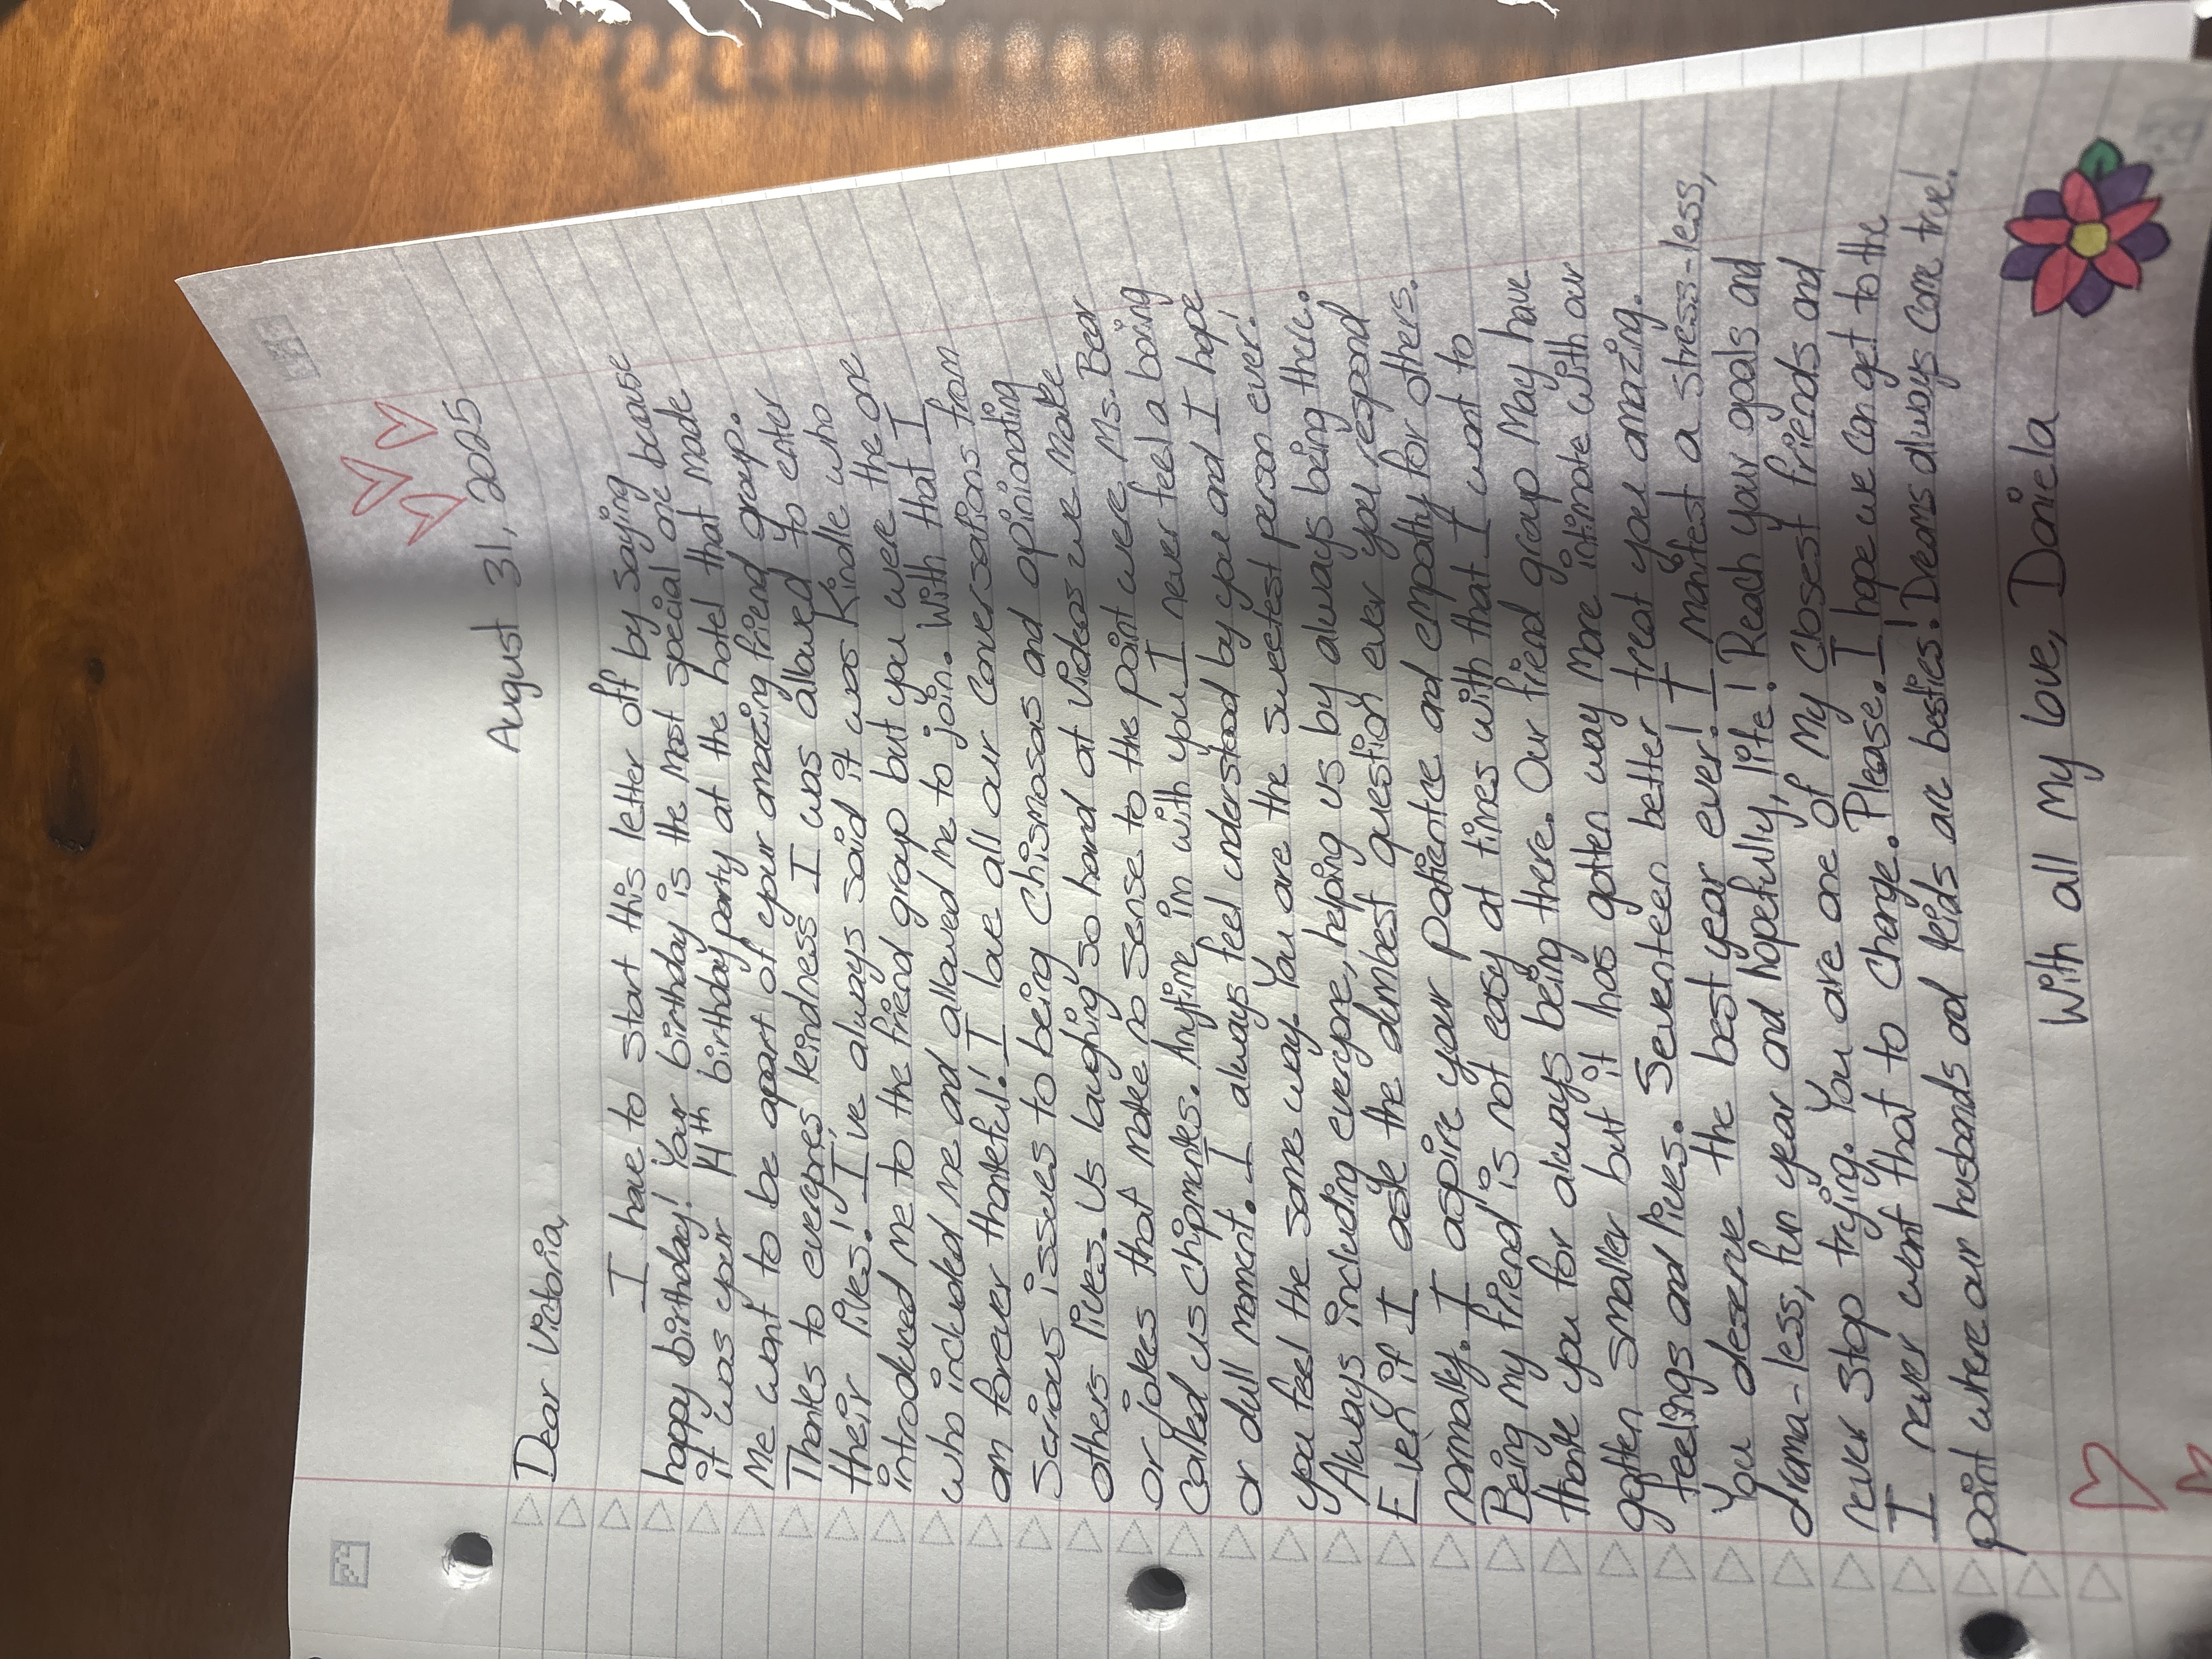 August 31, 2025
Dear Victoria,
I have to start this letter off by saying
happy birthday! Your birthday is the most special one because
it was your 14th birthday party at the hotel that made
me want to be apart of your amazing friend group.
Thanks to everyones kindness I was allowed to enter
their lives! I've always said it was Kindle who
introduced me to the friend group but you were the one
who included me and allowed me to join. With that I
am forever thankful! I love all our conversations from
serious issues to being chismosas and opinionading
others lives. Us laughing so hard at videos we make
or jokes that make no sense to the point were Ms. Bear
called us chipmunks. Anytime im with you I never feel a boring
or dull moment. I always feel understood by you and I hope
you feel the same way. You are the sweetest person ever!
Always including everyone, helping us by always being there.
Even if I ask the dumbest question ever you respond
normally. I aspire your patience and empathy for others.
Being my friend is not easy at times with that I want to
thank you for always being there. Our friend group may have
gotten smaller but it has gotten way more intimate with our
feelings and lives. Seventeen better treat you amazing.
You deserve the best year ever! I manifest a stress-less,
drama-less, fun year and hopefully, life! Reach your goals and
never stop trying. You are one of my closest friends and
I never want that to change. Please. I hope we can get to the
point where our husbands and kids are besties! Dreams always come true!
With all my love, Daniela